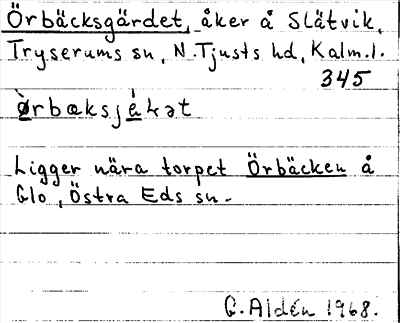 Örbäcksgärdet, åker å Slätvik,
Tryserums sn, N. Tjusts hd, Kalm. l.
345
Ligger nära torpet Örbäcken å
Glo, Östra Eds sn.
G. Aldén 1968.